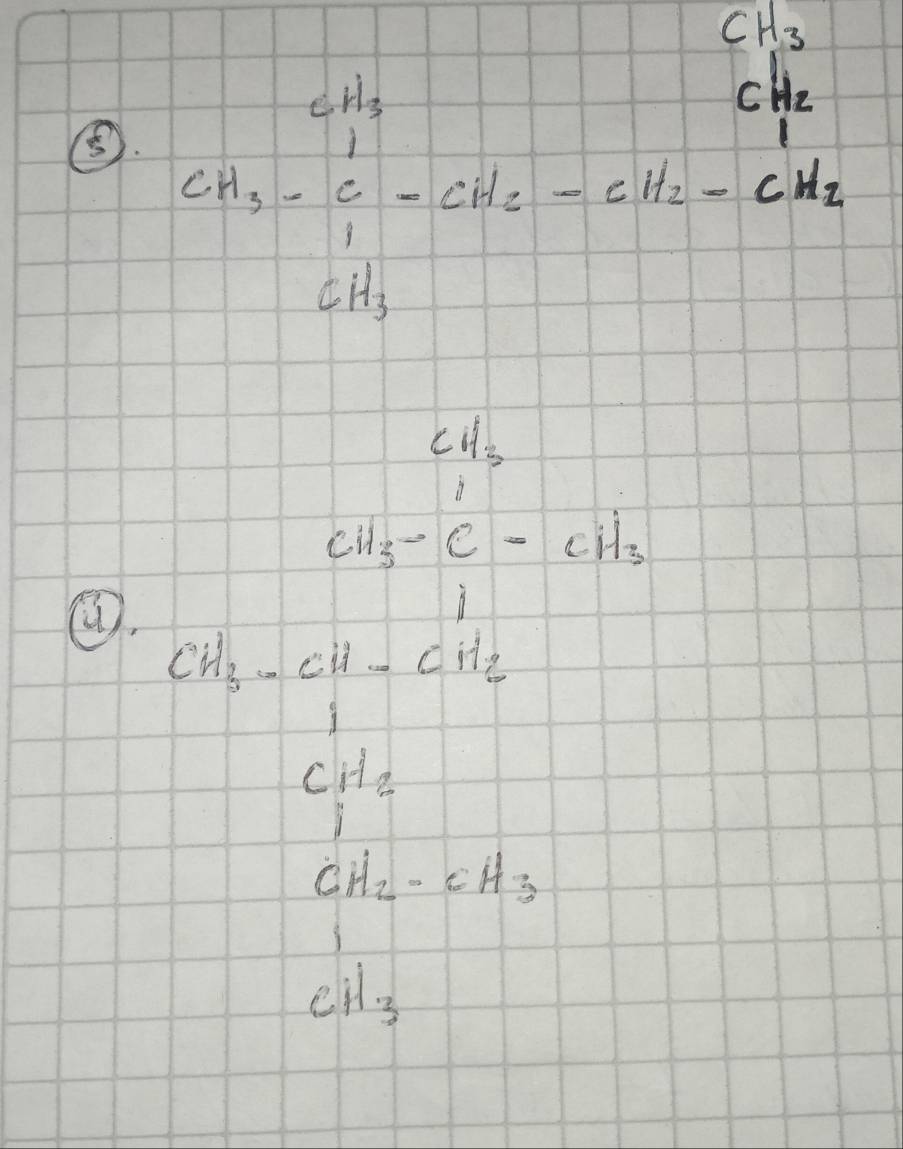 CH3
CH2
CH3
5. CH3 - C - CH2 - CH2 - CH2
CH3
CH3
CH3 - C - CH3
4.
CH3 - CH - CH2
CH2
CH2 - CH3
CH3